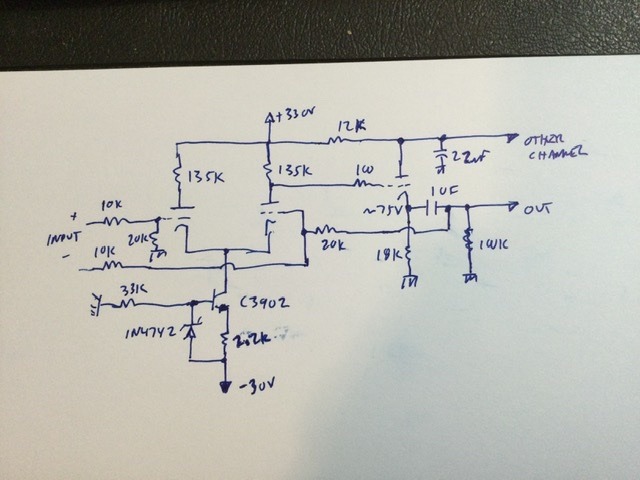 +330V
12K
OTHER
CHANNEL
135K
135K
100
22uF
1UF
~75V
OUT
10K
+
INPUT
-
20K
10K
20K
18K
100K
33K
C3902
1N4742
2.2K
-30V